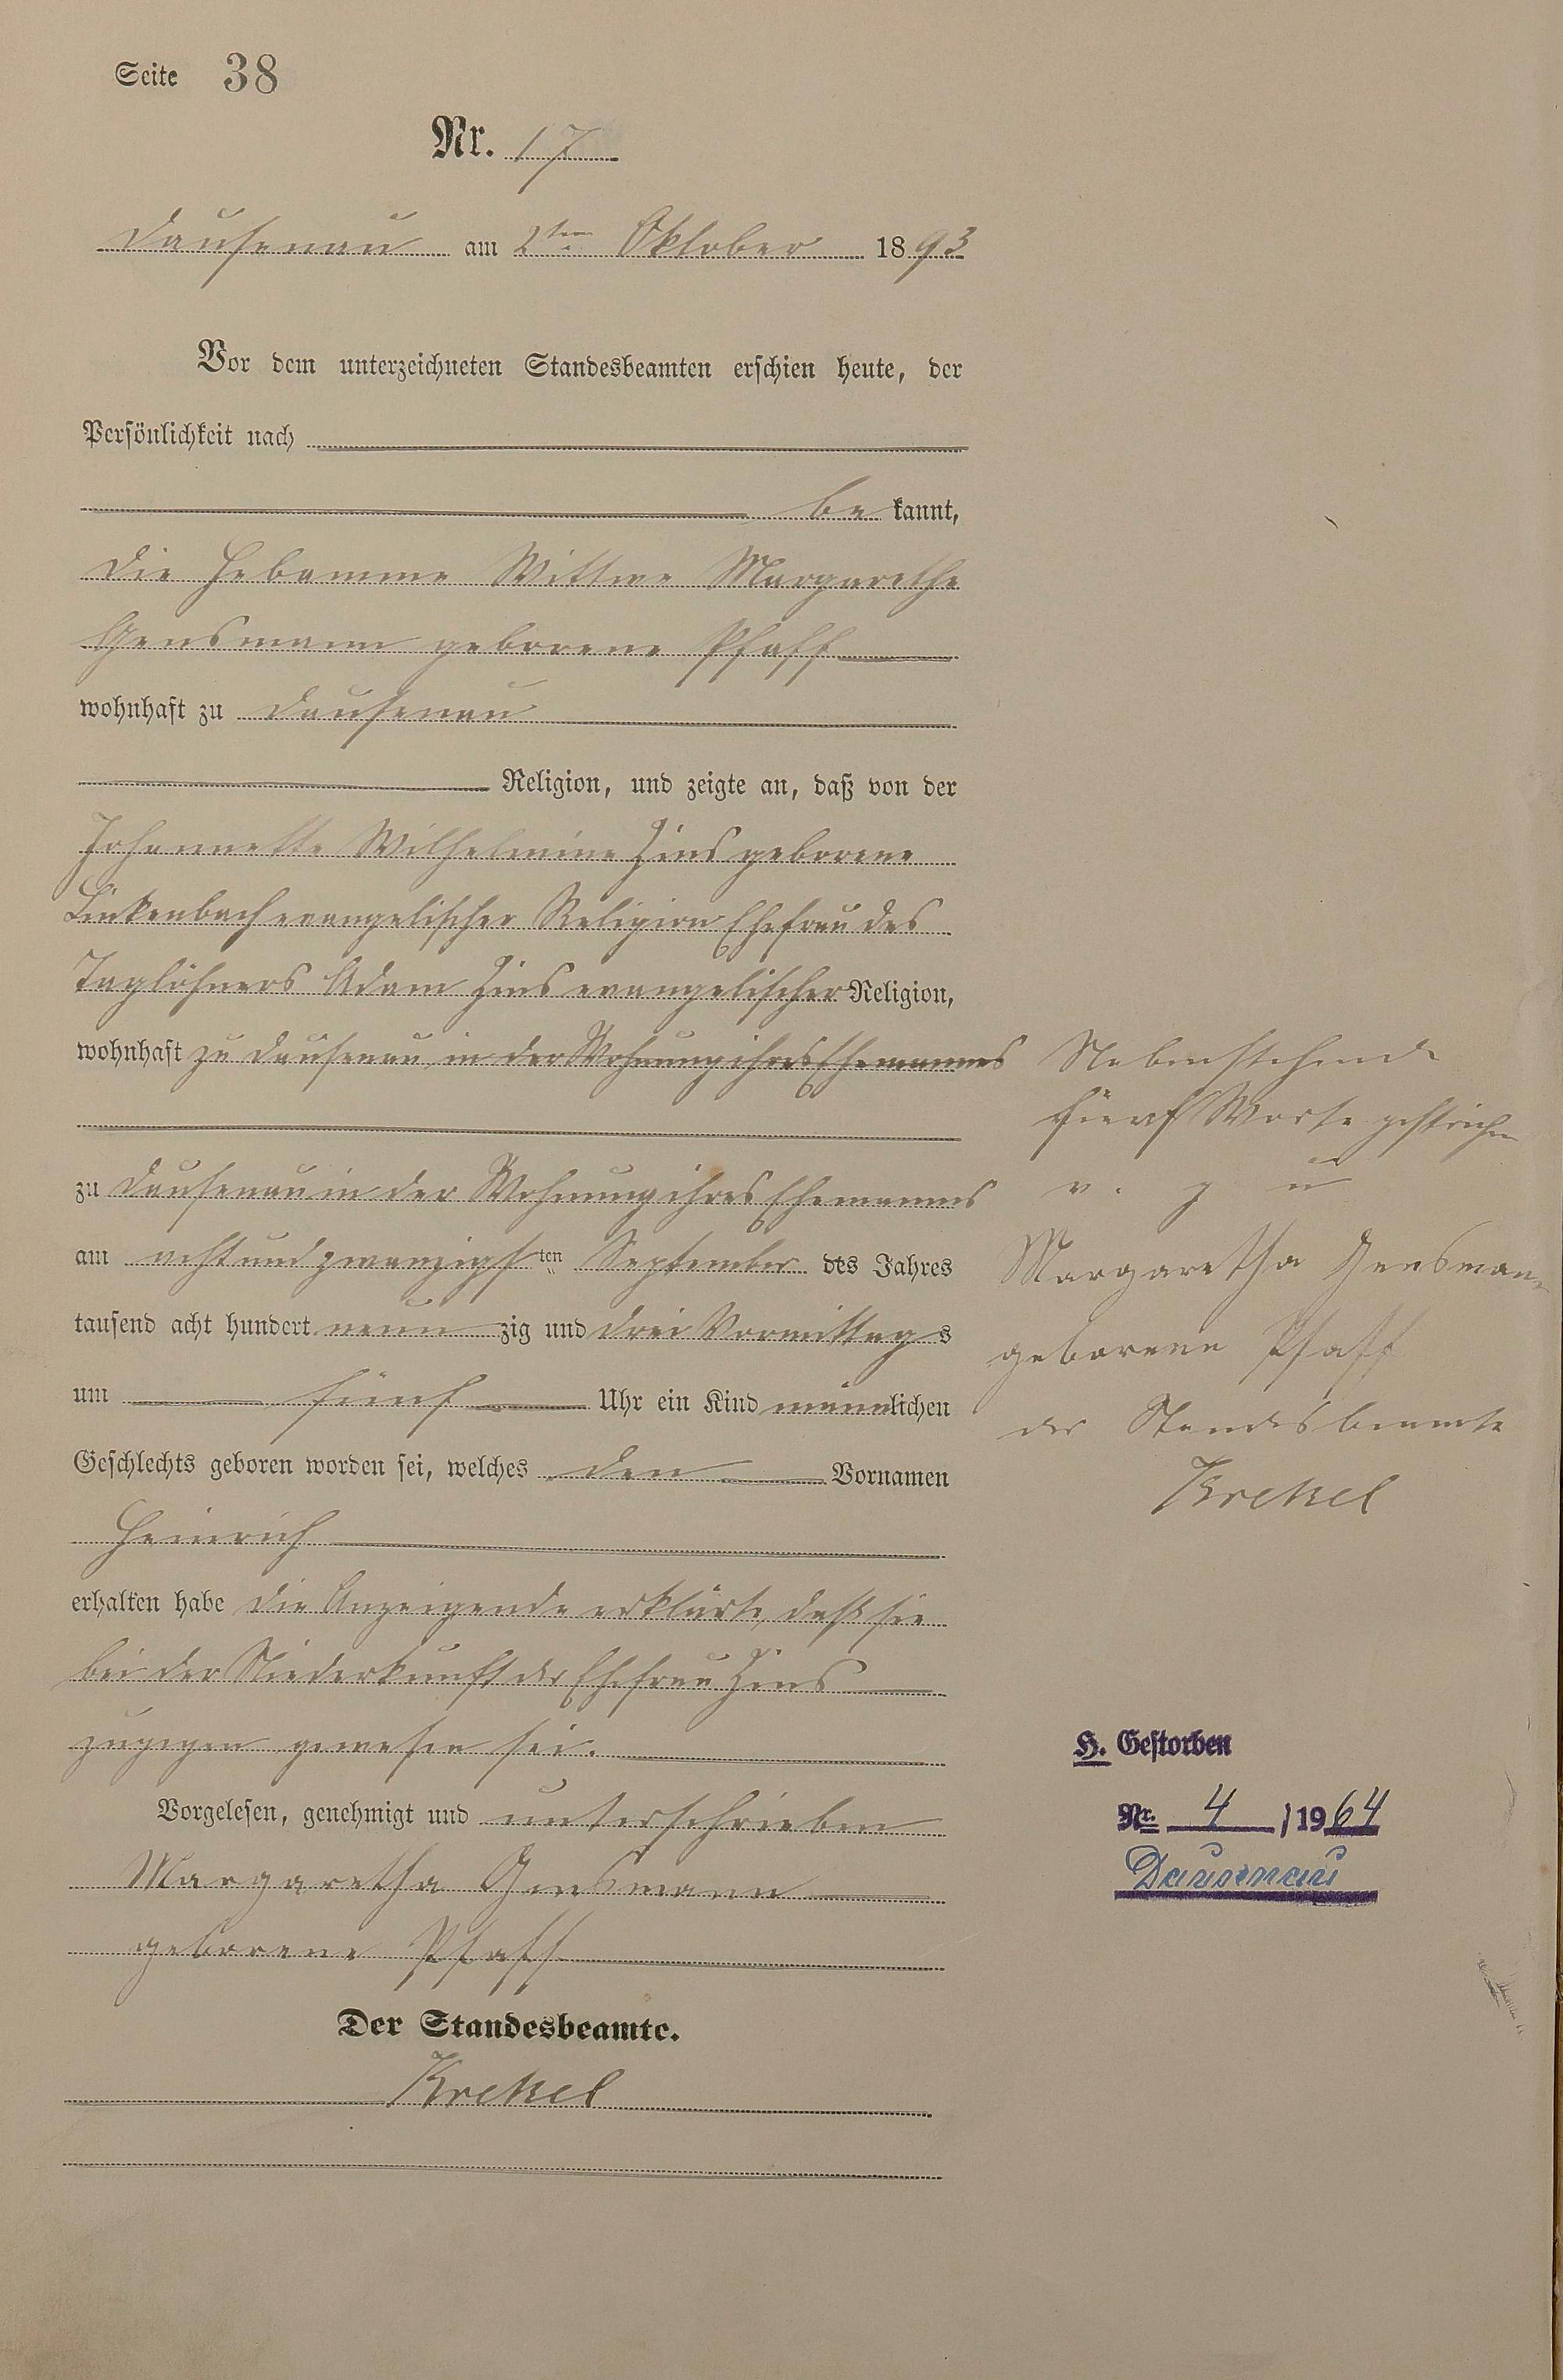 Seite 38
Nr. 17
Dausenau am 2ten Oktober 1893
Vor dem unterzeichneten Standesbeamten erschien heute, der
Persönlichkeit nach
be kannt,
die Hebamme Wittwe Margarethe
Gensmann geborene Pfaff
wohnhaft zu Dausenau
Religion, und zeigte an, daß von der
Johannette Wilhelmine Zins geborene
Linkenbach evangelischer Religion Ehefrau des
Taglöhners Adam Zins evangelischer Religion,
wohnhaft zu Dausenau, in der Wohnung ihres Ehemannes
zu Dausenau in der Wohnung ihres Ehemannes
am achtundzwanzigsten September des Jahres
tausend acht hundert neunzig und drei Vormittags
um fünf Uhr ein Kind männlichen
Geschlechts geboren worden sei, welches den Vornamen
Heinrich
erhalten habe die Anzeigende erklärte, daß sie
bei der Niederkunft der Ehefrau Zins
zugegen gewesen sei.
Vorgelesen, genehmigt und unterschrieben
Margaretha Gensmann
geborene Pfaff
Der Standesbeamte.
Krekel
Nebenstehende
fünf Worte gestrichen
v. g u
Margaretha Gensmann
geborene Pfaff
der Standesbeamte
Krekel
H. Gestorben
Nr. 4 / 1964
Dausenau